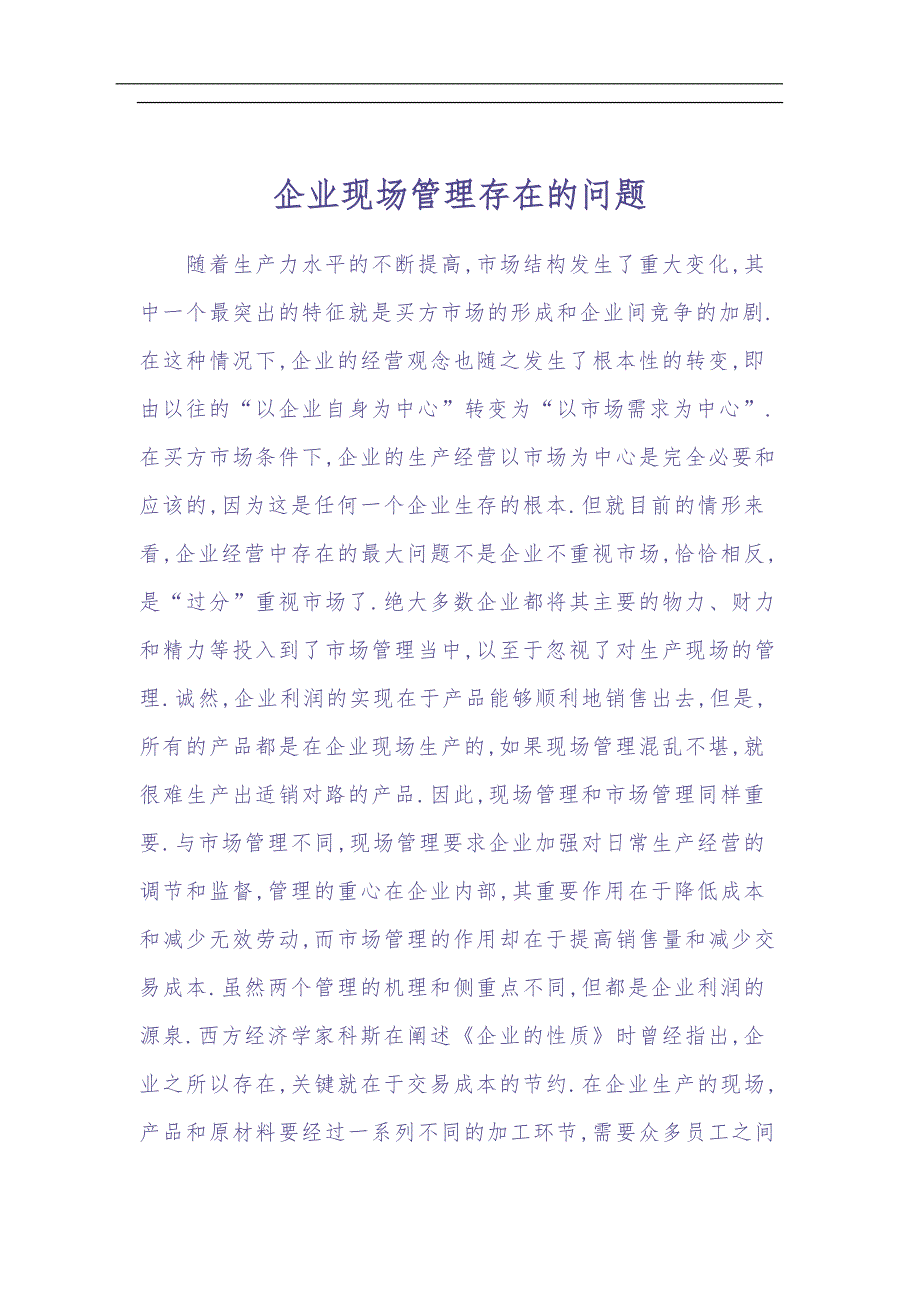 企业现场管理存在的问题
随着生产力水平的不断提高,市场结构发生了重大变化,其
中一个最突出的特征就是买方市场的形成和企业间竞争的加剧.
在这种情况下,企业的经营观念也随之发生了根本性的转变,即
由以往的“以企业自身为中心”转变为“以市场需求为中心”.
在买方市场条件下,企业的生产经营以市场为中心是完全必要和
应该的,因为这是任何一个企业生存的根本.但就目前的情形来
看,企业经营中存在的最大问题不是企业不重视市场,恰恰相反,
是“过分”重视市场了.绝大多数企业都将其主要的物力、财力
和精力等投入到了市场管理当中,以至于忽视了对生产现场的管
理.诚然,企业利润的实现在于产品能够顺利地销售出去,但是,
所有的产品都是在企业现场生产的,如果现场管理混乱不堪,就
很难生产出适销对路的产品.因此,现场管理和市场管理同样重
要.与市场管理不同,现场管理要求企业加强对日常生产经营的
调节和监督,管理的重心在企业内部,其重要作用在于降低成本
和减少无效劳动,而市场管理的作用却在于提高销售量和减少交
易成本.虽然两个管理的机理和侧重点不同,但都是企业利润的
源泉.西方经济学家科斯在阐述《企业的性质》时曾经指出,企
业之所以存在,关键就在于交易成本的节约.在企业生产的现场,
产品和原材料要经过一系列不同的加工环节,需要众多员工之间